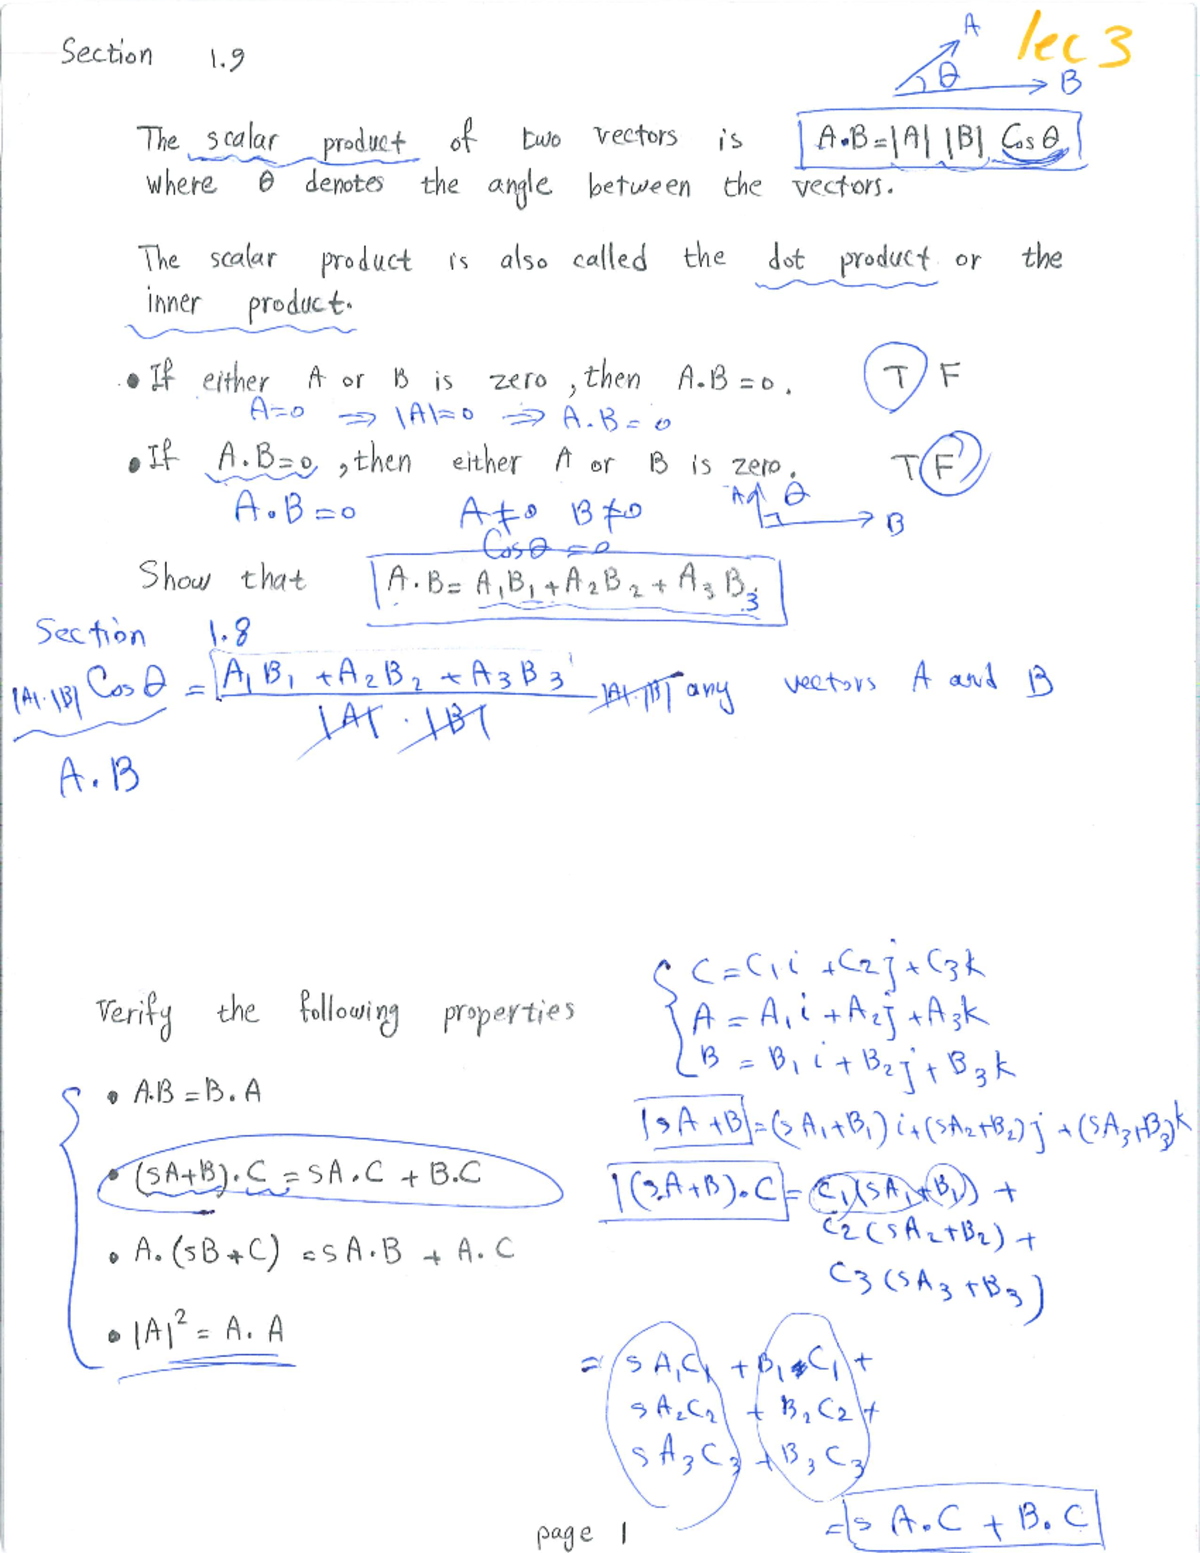 lec 3
Section 1.9
A
θ
B
The scalar product of two vectors is A·B=|A| |B| Cos θ
where θ denotes the angle between the vectors.
The scalar product is also called the dot product or the
inner product.
• If either A or B is zero, then A.B = 0. T F
A=0 ⇒ |A|=0 ⇒ A.B = 0
• If A.B=0, then either A or B is zero. T F
A.B=0 A≠0 B≠0 A θ B
Cos θ = 0
Show that A.B= A₁B₁+A₂B₂+A₃B₃
Section 1.8
|A|.|B| Cos θ = A₁B₁ + A₂B₂ + A₃B₃ / |A|.|B| |A|.|B| any vectors A and B
A.B
Verify the following properties
• A.B = B.A
• (sA+B).C = sA.C + B.C
• A.(sB+C) = sA.B + A.C
• |A|² = A.A
C = C₁i + C₂j + C₃k
A = A₁i + A₂j + A₃k
B = B₁i + B₂j + B₃k
sA+B = (sA₁+B₁)i+(sA₂+B₂)j+(sA₃+B₃)k
(sA+B).C = C₁(sA₁+B₁) +
C₂(sA₂+B₂) +
C₃(sA₃+B₃)
= sA₁C₁ + B₁C₁ +
sA₂C₂ + B₂C₂ +
sA₃C₃ + B₃C₃
= sA.C + B.C
page 1